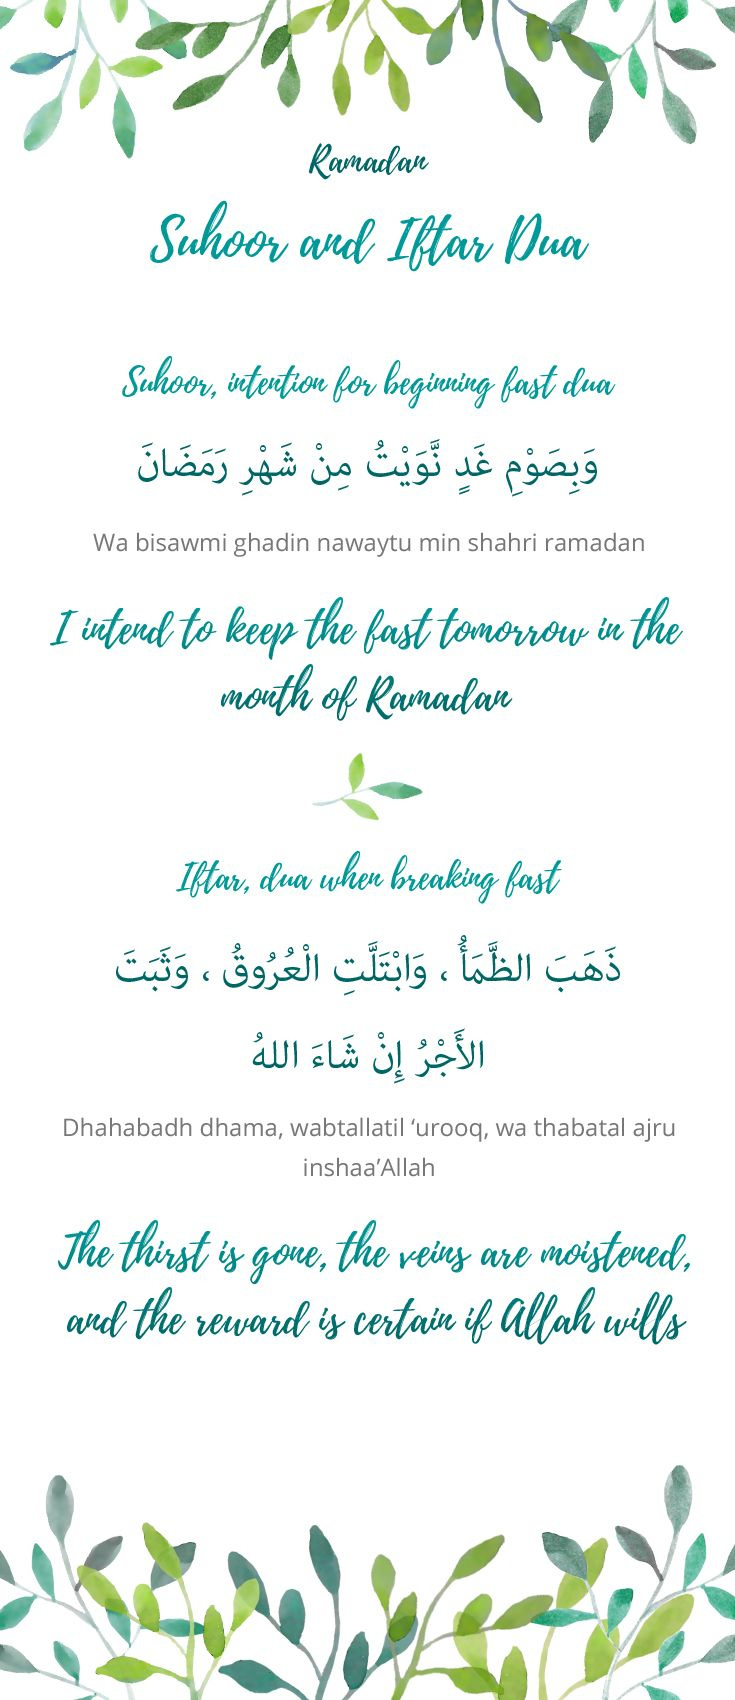 Ramadan
Suhoor and Iftar Dua
Suhoor, intention for beginning fast dua
وَبِصَوْمِ غَدٍ نَّوَيْتُ مِنْ شَهْرِ رَمَضَانَ
Wa bisawmi ghadin nawaytu min shahri ramadan
I intend to keep the fast tomorrow in the
month of Ramadan
Iftar, dua when breaking fast
ذَهَبَ الظَّمَأُ ، وَابْتَلَّتِ الْعُرُوقُ ، وَثَبَتَ
الأَجْرُ إِنْ شَاءَ اللهُ
Dhahabadh dhama, wabtallatil ‘urooq, wa thabatal ajru
inshaa’Allah
The thirst is gone, the veins are moistened,
and the reward is certain if Allah wills